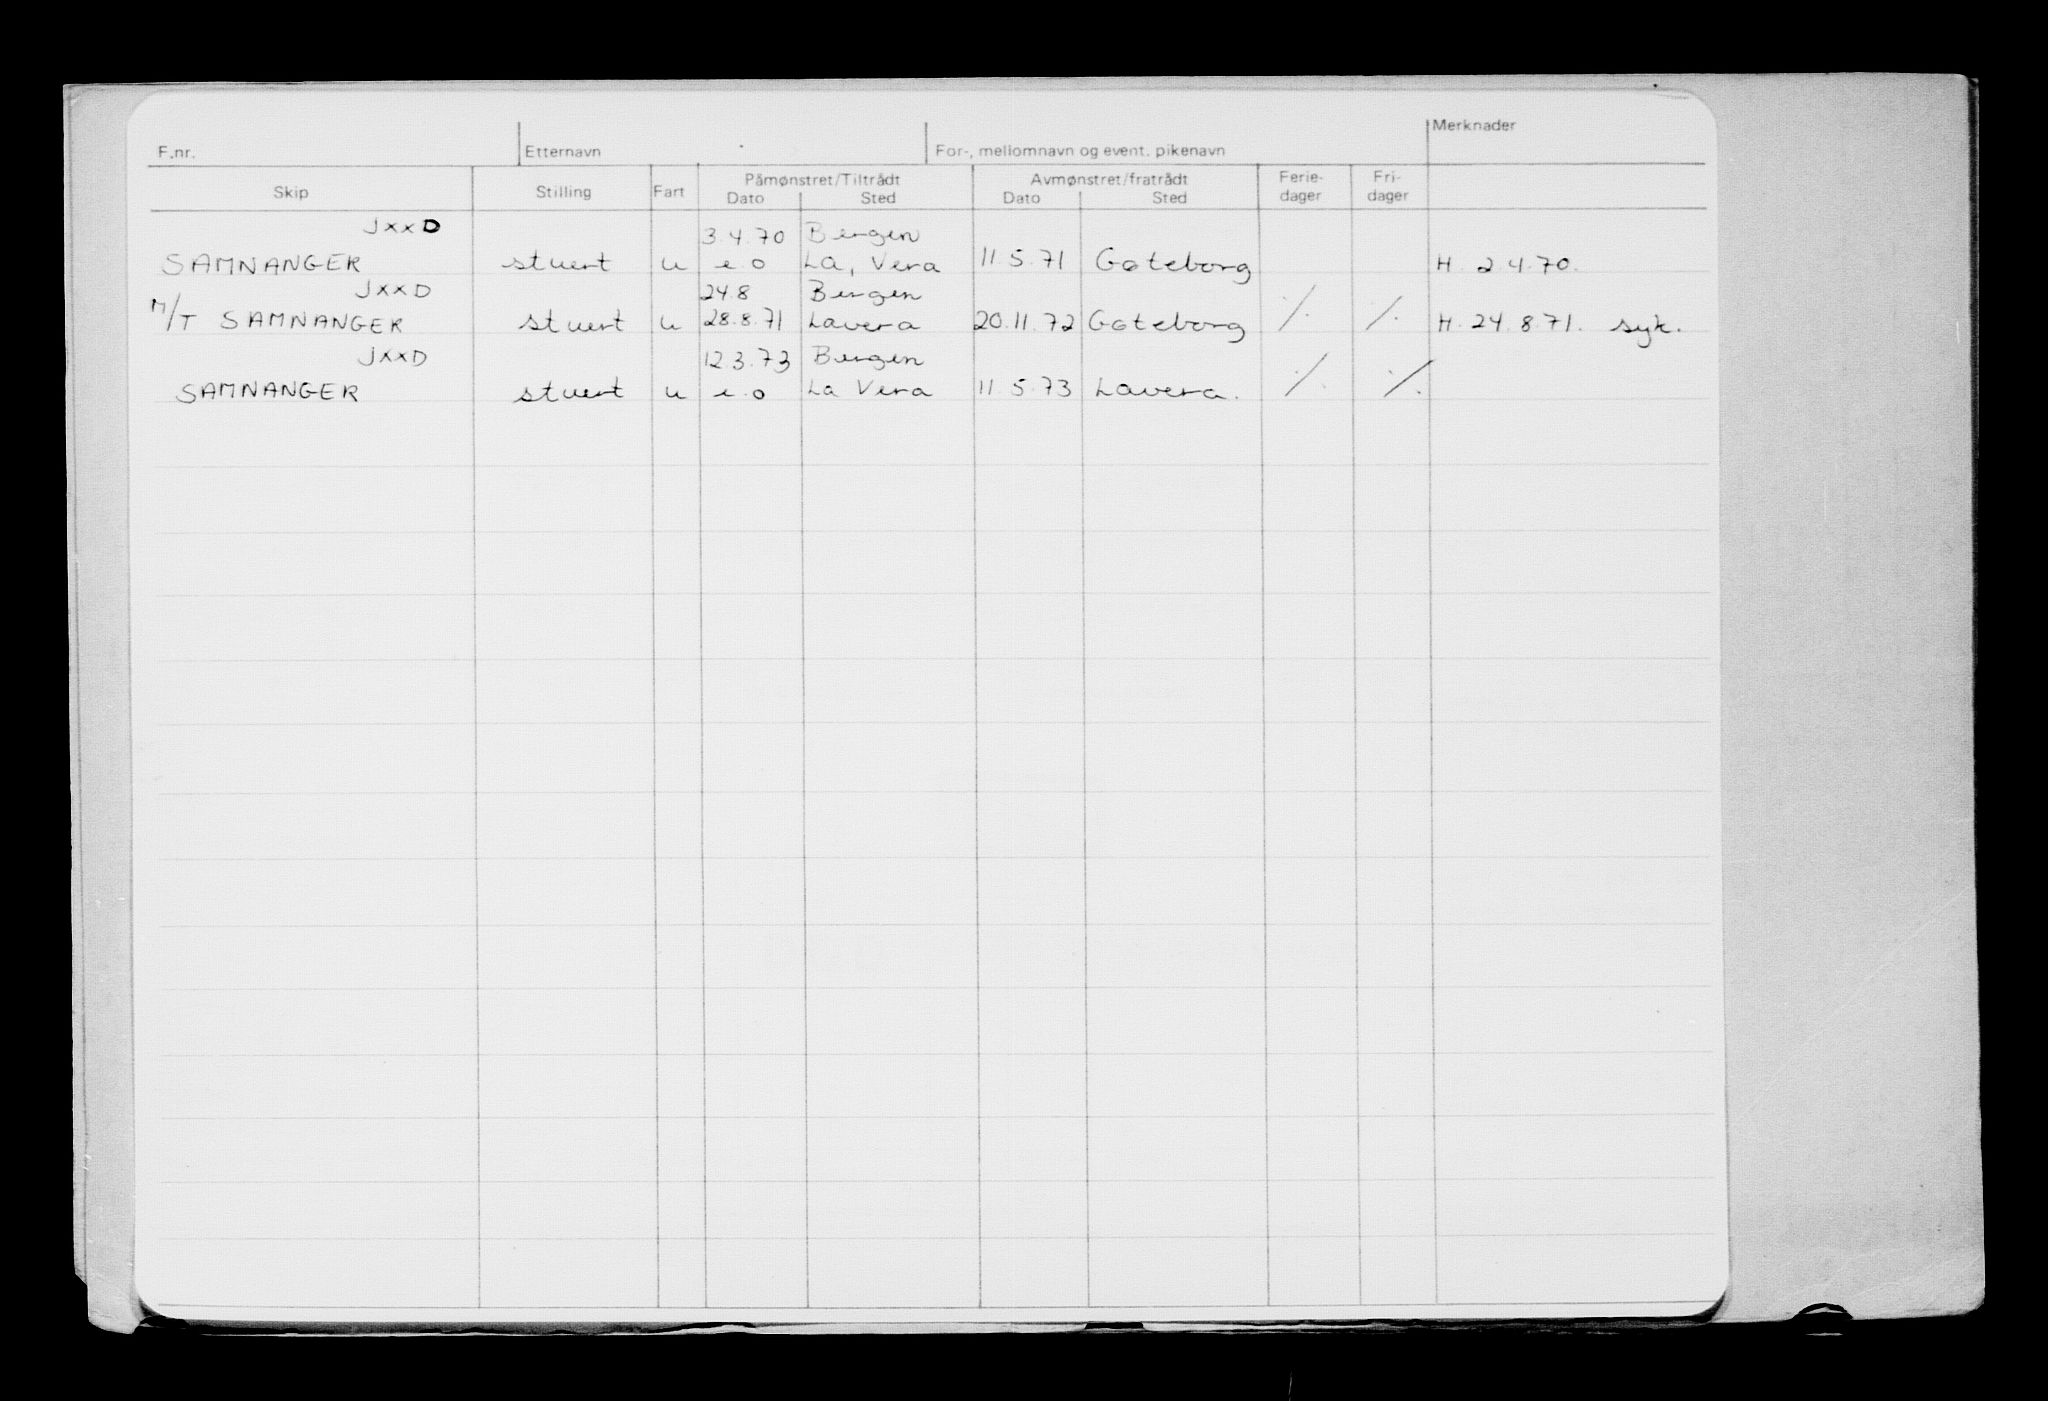 F.nr. Etternavn For-, mellomnavn og event. pikenavn Merknader
Skip Stilling Fart Påmønstret/Tiltrådt Avmønstret/fratrådt Ferie- Fri-
Dato Sted Dato Sted dager dager
JxxD 3.4.70 Bergen
SAMNANGER stuert u e.o La, Vera 11.5.71 Gøteborg H. 2.4.70.
JxxD 24.8 Bergen
M/T SAMNANGER stuert u 28.8.71 Lavera 20.11.72 Gøteborg ./. ./. H. 24.8.71. syk.
JxxD 12.3.73 Bergen
SAMNANGER stuert u e.o La Vera 11.5.73 Lavera. ./. ./.